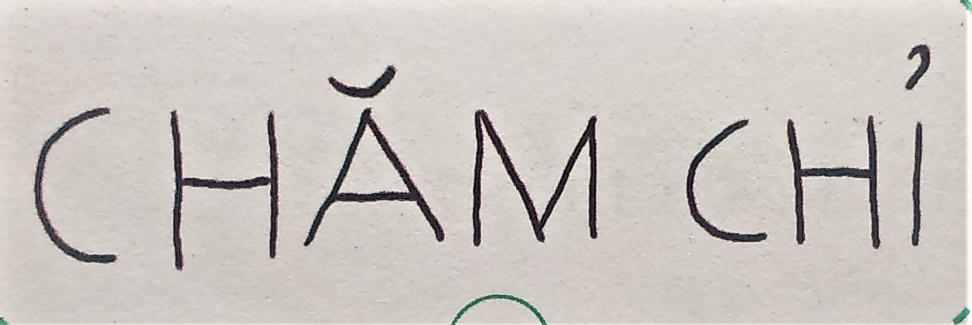 CHĂM CHỈ